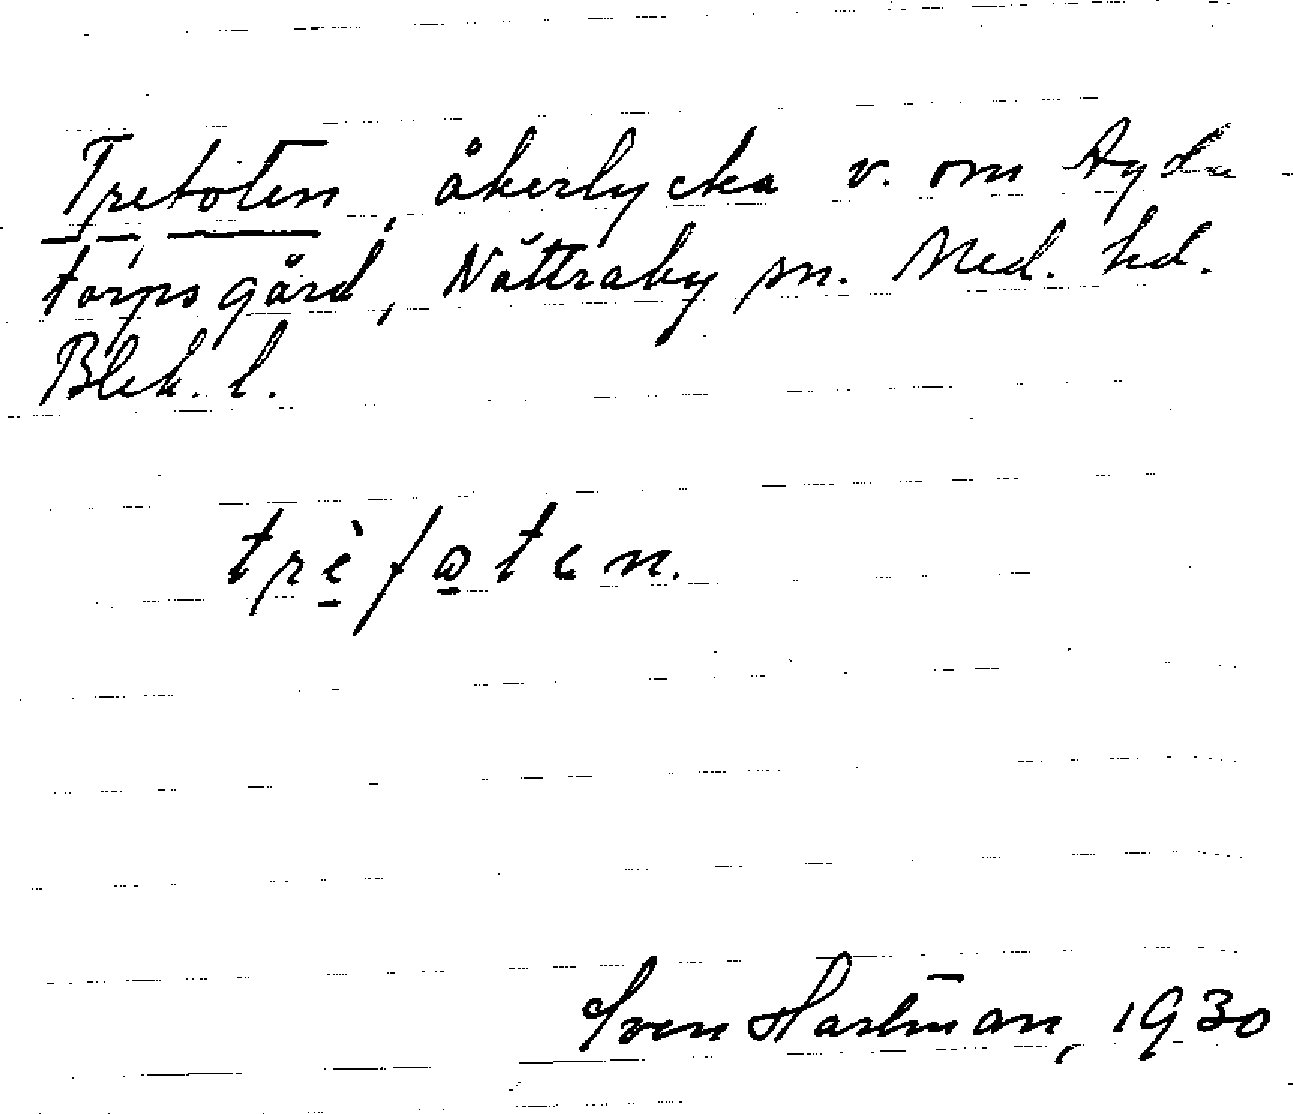 Trefoten, åkerlycka v. om Agda
torps gård, Nättraby sn. Med. hd.
Blek. l.
trè̱fo̱ten.
Sven Hartman, 1930